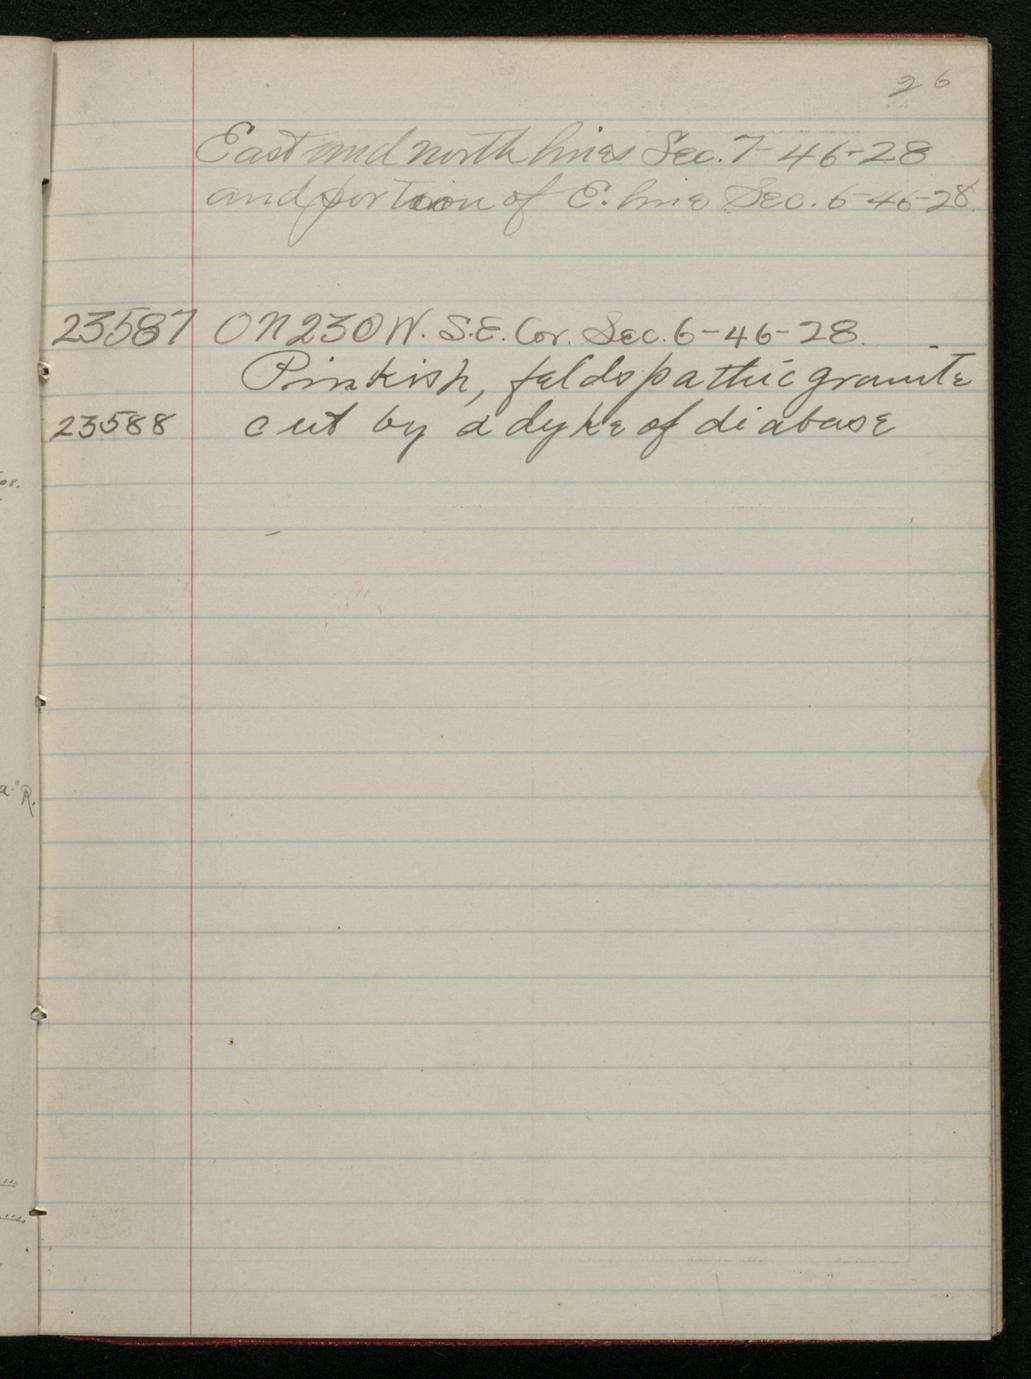 26
East and north lines Sec. 7-46-28
and portion of E. line Sec. 6-46-28
23587 0N 230W. S.E. Cor. Sec. 6-46-28.
Pinkish, feldspathic granite
23588 cut by a dyke of diabase
or.
R.